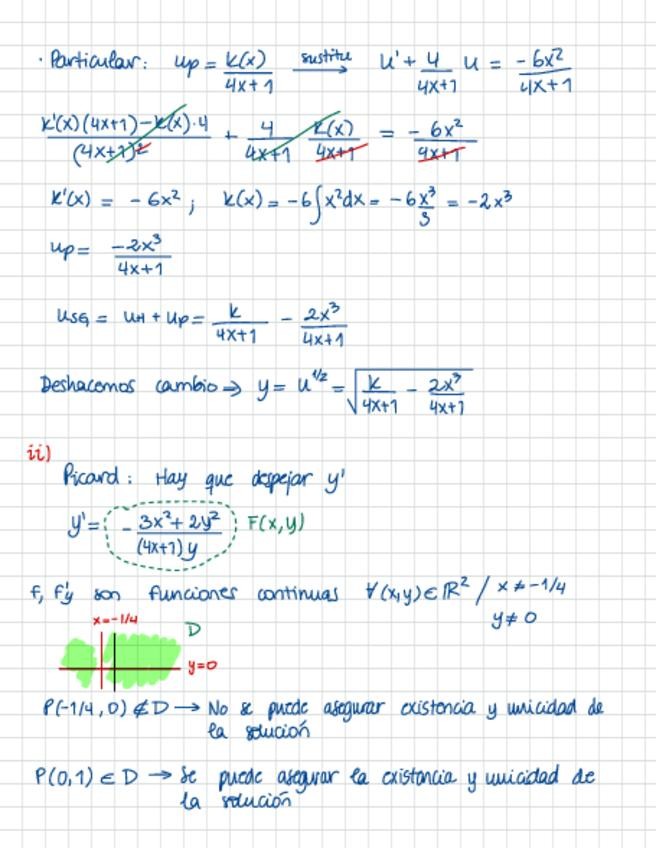 · Particular: up = k(x)/(4x+1) sustitu → u' + 4/(4x+1) u = -6x²/(4x+1)
(k'(x)(4x+1) - k(x)·4)/(4x+1)² + 4/(4x+1) k(x)/(4x+1) = -6x²/(4x+1)
k'(x) = -6x² ; k(x) = -6∫x²dx = -6x³/3 = -2x³
up = -2x³/(4x+1)
USG = UH + Up = k/(4x+1) - 2x³/(4x+1)
Deshacemos cambio ⇒ y = u^(1/2) = √(k/(4x+1) - 2x³/(4x+1))
ii)
Picard: Hay que despejar y'
y' = - (3x² + 2y²)/((4x+1)y) F(x,y)
f, f'y son funciones continuas ∀(x,y)∈ℝ² / x ≠ -1/4
y ≠ 0
x=-1/4
D
y=0
P(-1/4, 0) ∉ D → No se puede asegurar existencia y unicidad de
la solución
P(0,1) ∈ D → Se puede asegurar la existencia y unicidad de
la solución